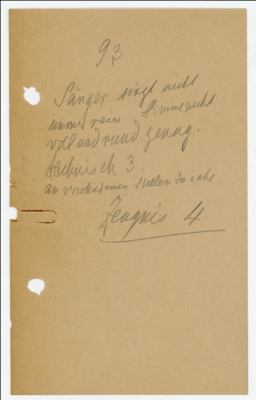 93
Sänger singt nicht
immer rein Stimme nicht
voll und rund genug.
technisch 3.
An verschiedenen Stellen zu nahe.
Zeugnis 4